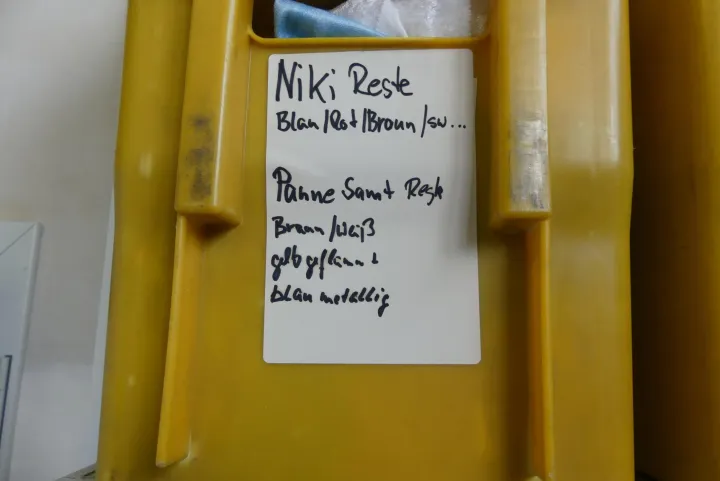 Niki Reste
Blau/Rot/Braun/sw...
Panne Samt Reste
Braun/weiß
gelb geflammt
blau metallig